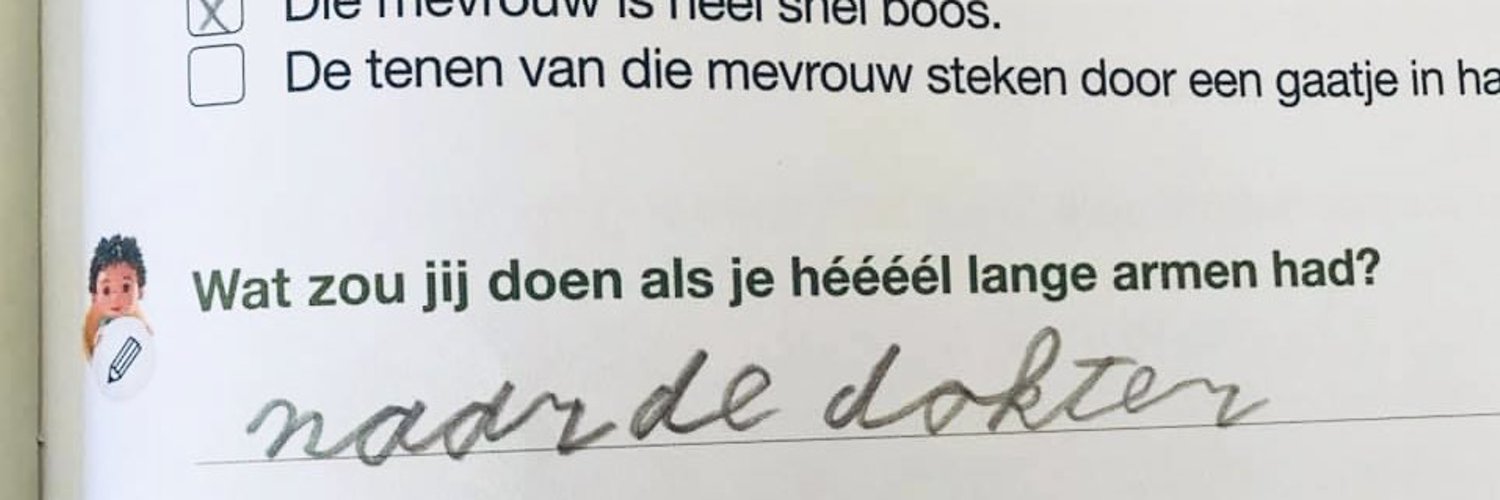 Die mevrouw is heel snel boos.
De tenen van die mevrouw steken door een gaatje in ha
Wat zou jij doen als je héééél lange armen had?
naar de dokter